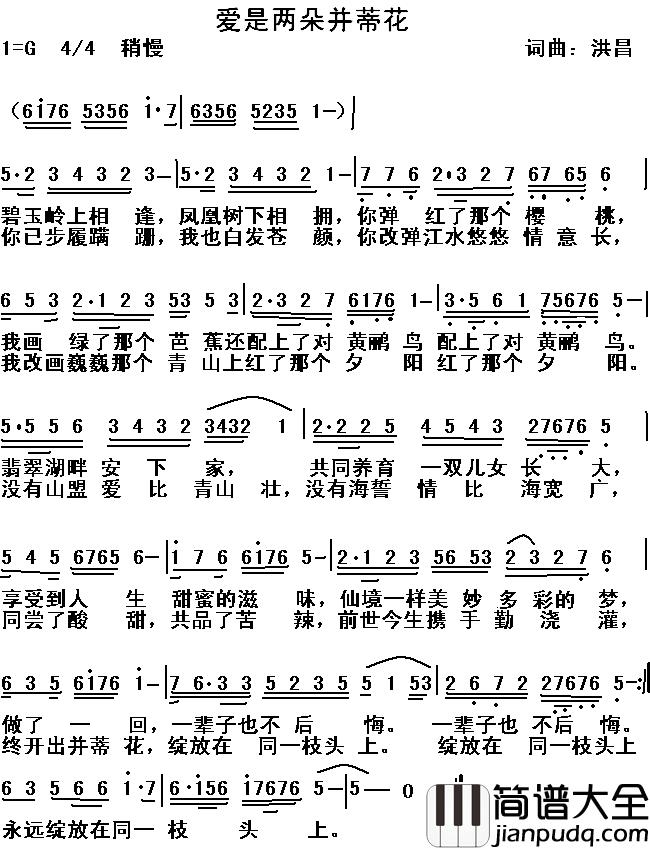 爱是两朵并蒂花
1=G 4/4 稍慢 词曲：洪昌
（6i76 5356 i·7|6356 5235 1-）|
5·2 3432 3-|5·2 3432 1-|7 7 6 2·327 67 65 6
碧玉岭上相 逢，凤凰树下相 拥，你弹 红了那个 樱 桃，
你已步履蹒 跚，我也白发苍 颜，你改弹江水悠悠 情 意 长，
6 5 3 2·123 53 5 3|2·327 6176 1-|3·561 75676 5-|
我画 绿了那个 芭 蕉还配上了对 黄鹂 鸟 配上了对 黄鹂 鸟。
我改画巍巍那个 青 山上红了那个 夕 阳 红了那个 夕 阳。
5·556 3432 3432 1|2·225 4543 27676 5|
翡翠湖畔 安 下 家， 共同养育 一双儿女 长 大，
没有山盟 爱 比 青山 壮，没有海誓 情 比 海宽 广，
5 4 5 6765 6-|i 7 6 6i76 5-|2·123 56 53 2327 6|
享受到人 生 甜蜜的滋 味，仙境一样美 妙 多 彩的 梦，
同尝了酸 甜，共品了苦 辣，前世今生携 手 勤 浇 灌，
6 3 5 6i76 i-|7 6·3 3 5235 5 1 53|2 6 7 2 27676 5-:|
做了 一 回，一辈子也 不 后 悔。 一辈子也 不后 悔。
终开出并蒂 花，绽放在 同一枝头 上。 绽放在 同一枝头上
6 3 5 6 6 i·7|6·i56 i7676 5-|5-0
永远绽放在同一 枝 头 上。
简谱大全
jianpudq.com